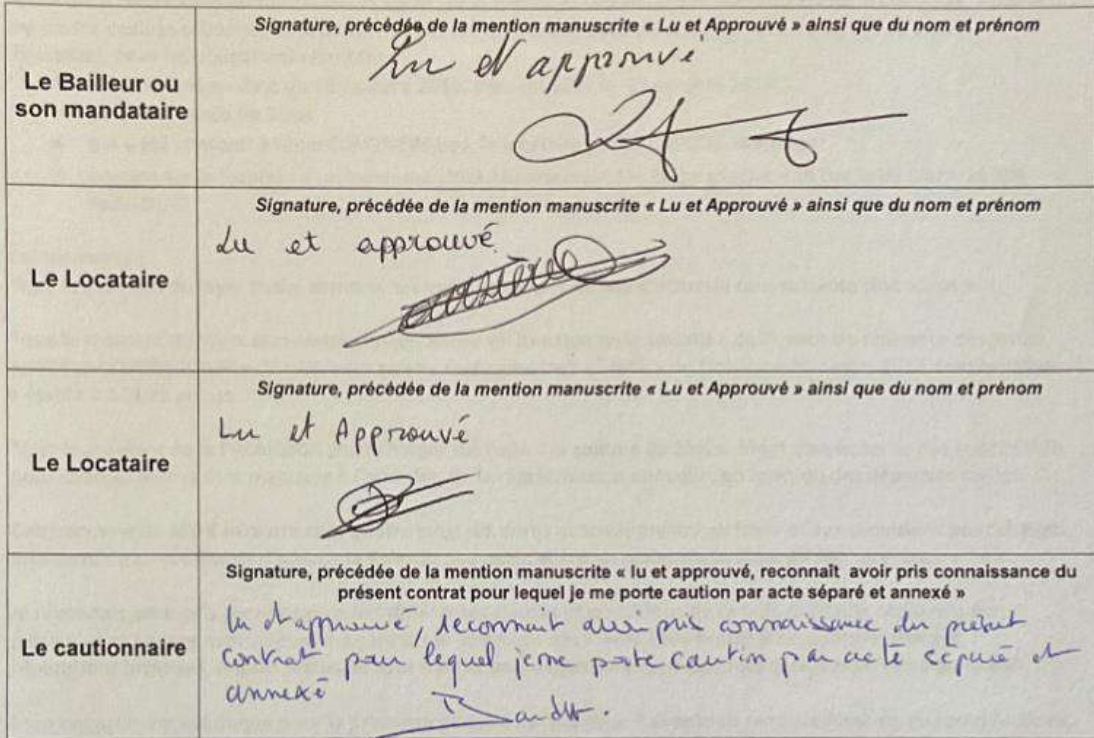 Signature, précédée de la mention manuscrite « Lu et Approuvé » ainsi que du nom et prénom
Le Bailleur ou
son mandataire
Lu et approuvé
Signature, précédée de la mention manuscrite « Lu et Approuvé » ainsi que du nom et prénom
Le Locataire
Lu et approuvé
Signature, précédée de la mention manuscrite « Lu et Approuvé » ainsi que du nom et prénom
Le Locataire
Lu et Approuvé
Signature, précédée de la mention manuscrite « lu et approuvé, reconnaît avoir pris connaissance du
présent contrat pour lequel je me porte caution par acte séparé et annexé »
Le cautionnaire
lu et approuvé, reconnait avoir pris connaissance du présent
contrat pour lequel je me porte caution par acte séparé et
annexé